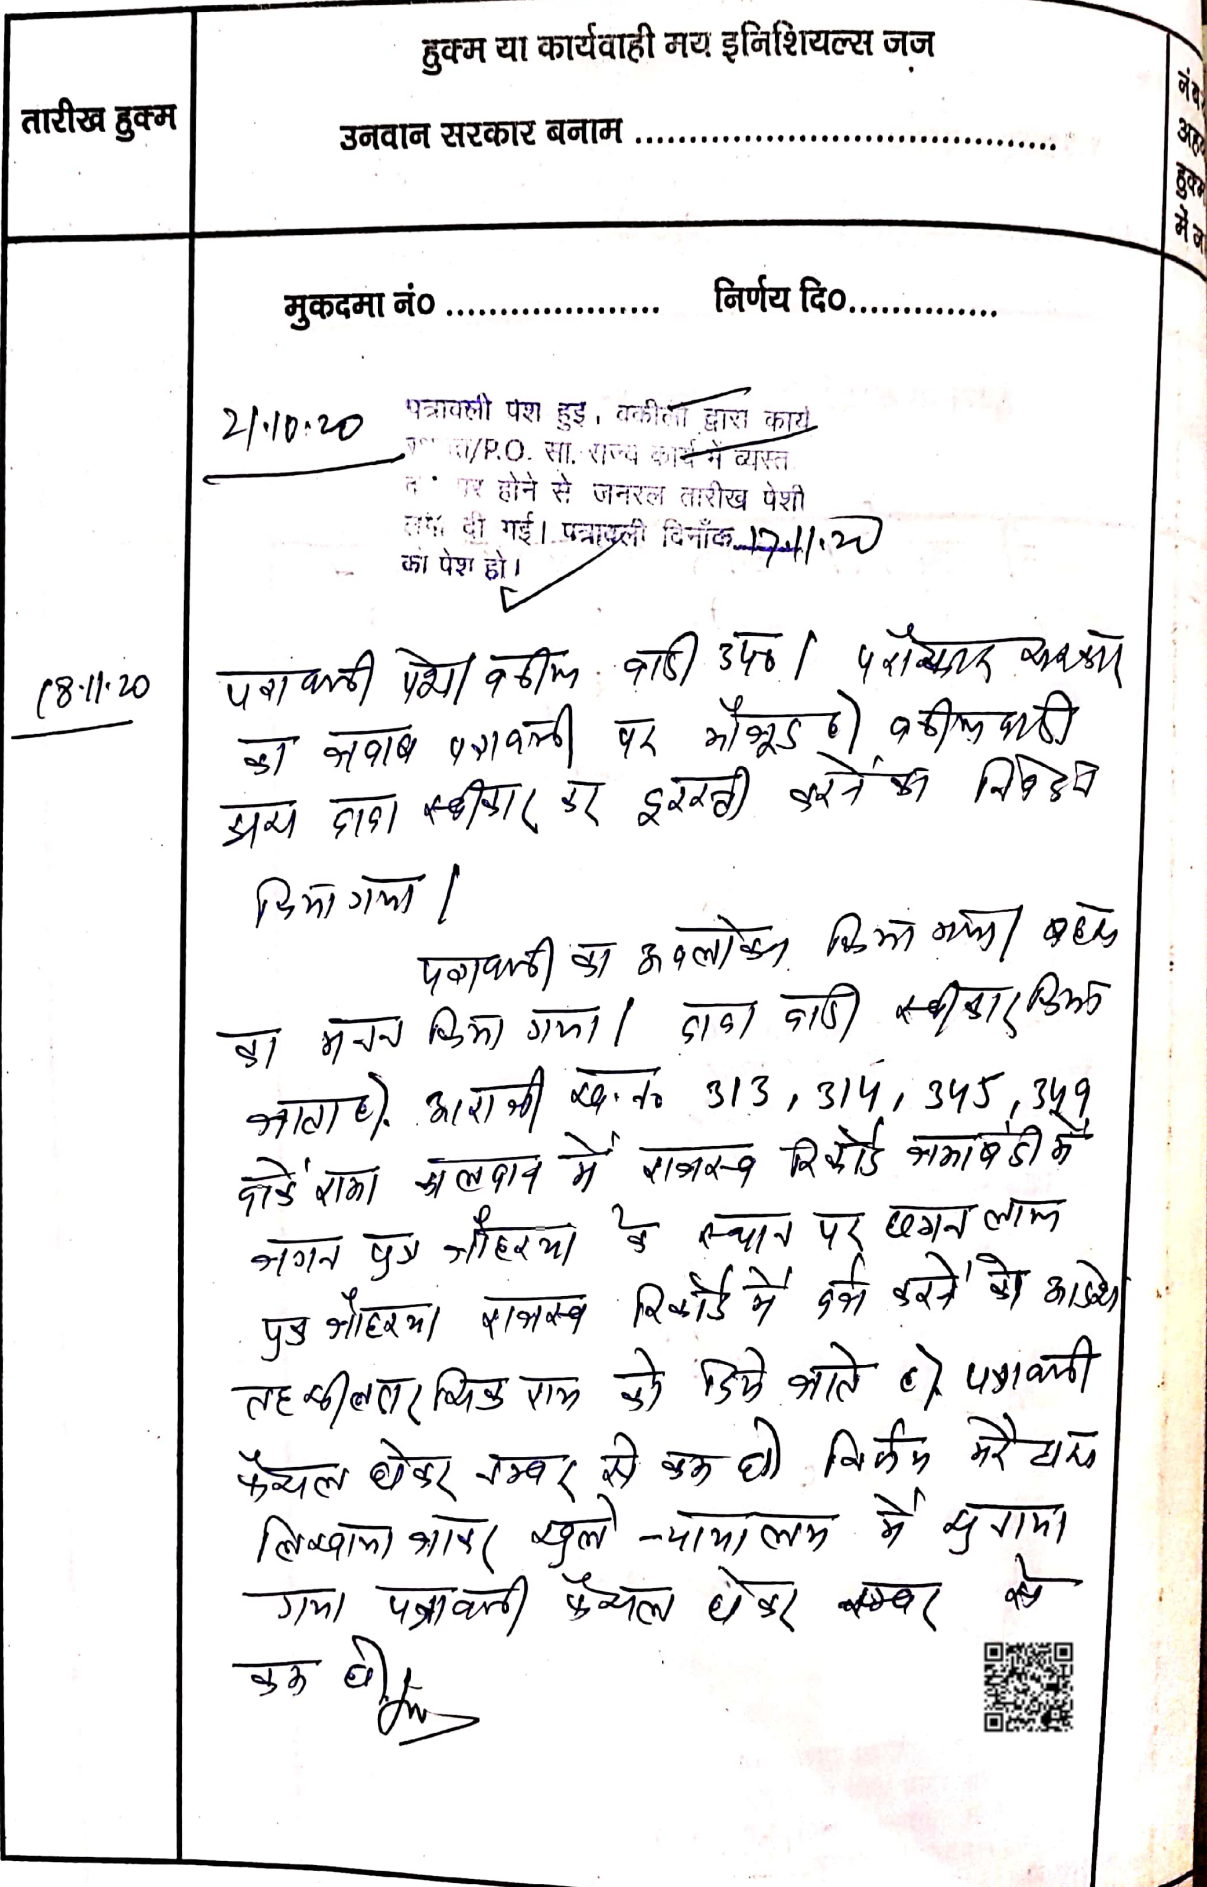 हुक्म या कार्यवाही मय इनिशियल्स जज़
तारीख हुक्म
उनवान सरकार बनाम ........................................
मुकदमा नं० .................... निर्णय दि०..............
21.10.20
पत्रावली पेश हुई, वकीलों द्वारा कार्य
/P.O. सा. राज्य कार्य में व्यस्त
पर होने से जनरल तारीख पेशी
दी गई। पत्रावली दिनाँक 17.11.20
को पेश हो।
18.11.20
पत्रावली पेश। वकील वादी उप०।
का जवाब पत्रावली पर मौजूद है। वकील वादी
दावा स्वीकार कर दुरस्ती करने का निवेदन
किया गया।
पत्रावली का अवलोकन किया गया। बहस
का मनन किया गया। दावा वादी स्वीकार किया
जाता है। आराजी ख. नं० 313, 314, 345, 349
में राजस्व रिकॉर्ड जमाबंदी में
जगन पुत्र के स्थान पर छगन लाल
पुत्र राजस्व रिकॉर्ड में दर्ज करने के आदेश
को दिये जाते है। पत्रावली
फैसल होकर नम्बर से कम हो। निर्णय मेरे द्वारा
लिखाया जाकर खुले न्यायालय में सुनाया
गया पत्रावली फैसल होकर नम्बर से
कम हो।
नंब
हुक्म